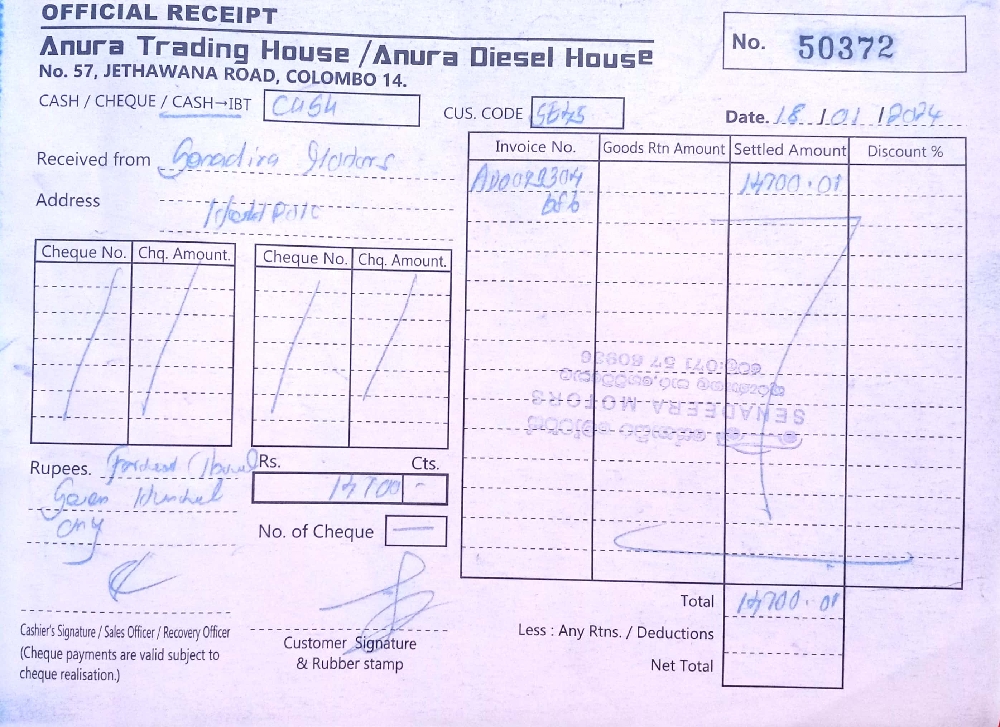 OFFICIAL RECEIPT
Anura Trading House /Anura Diesel House
No. 57, JETHAWANA ROAD, COLOMBO 14.
No. 50372
CASH / CHEQUE / CASH→IBT CASH
CUS. CODE
Date. 18 / 01 / 2024
Received from
Address
Invoice No. Goods Rtn Amount Settled Amount Discount %
14700.01
Cheque No. Chq. Amount. Cheque No. Chq. Amount.
SENADEERA MOTORS
071 57 60936
Rupees.
only
Rs. Cts.
14700 -
No. of Cheque —
Total 14700.01
Less : Any Rtns. / Deductions
Net Total
Cashier's Signature / Sales Officer / Recovery Officer
(Cheque payments are valid subject to
cheque realisation.)
Customer Signature
& Rubber stamp